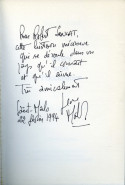 Pour Robert
cette histoire
qui se déroule dans un
pays qu'il connait
et qu'il aime.
Très amicalement
Saint-Malo
22 1994